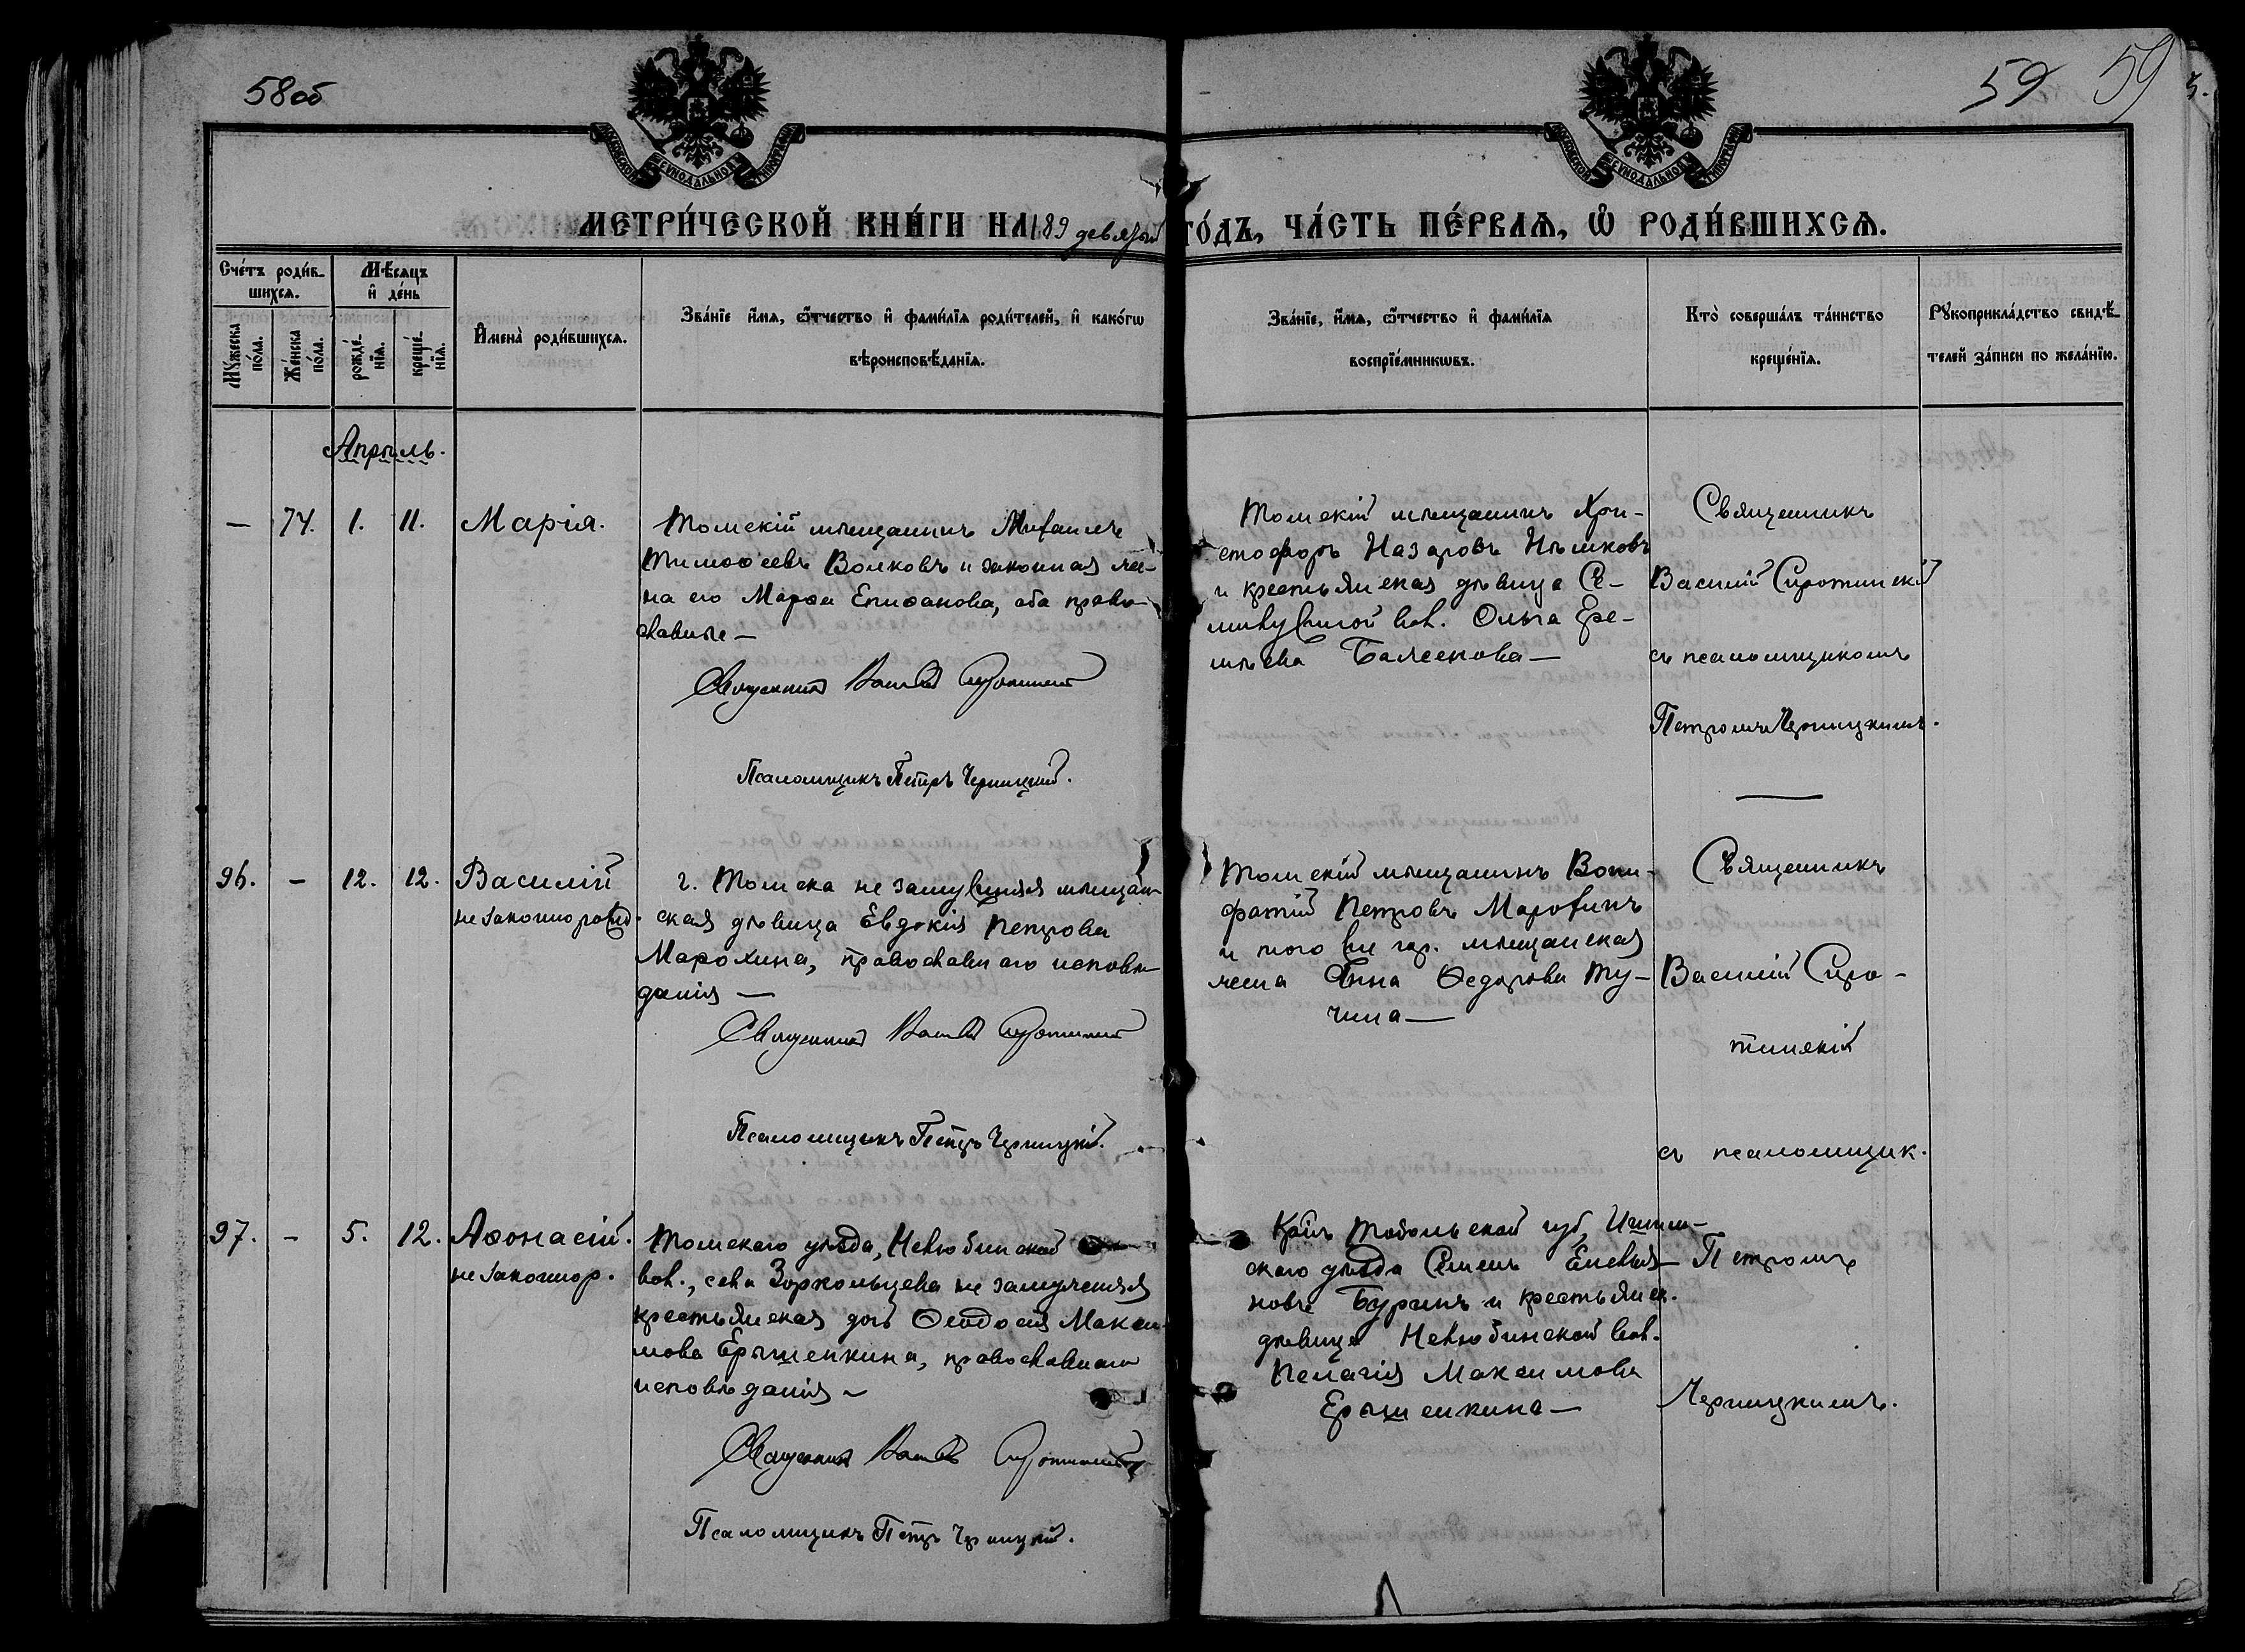 58об
59 59
МОСКОВСКОЙ СѴНОДАЛЬНОЙ ТИПОГРАФІИ
МОСКОВСКОЙ СѴНОДАЛЬНОЙ ТИПОГРАФІИ
МЕТРИ́ЧЕСКОЙ КНИ́ГИ НА 189 девятый ГО́ДЪ, ЧА́СТЬ ПЕ́РВАѦ, Ѽ РОДИ́ВШИХСѦ.
Сче́тъ роди́в-
шихсѧ.
Мꙋ́жеска
по́ла.
Же́нска
по́ла.
Мѣ́сѧцъ
и҆ де́нь
рожде́-
нїѧ.
креще́-
нїѧ.
И҆мена̀ роди́вшихсѧ.
Зва́нїе и҆́мѧ, ѻ҆́тчество и҆ фами́лїѧ роди́телей, и҆ како́гѡ
вѣроисповѣ́данїѧ.
Зва́нїе, и҆́мѧ, ѻ҆́тчество и҆ фами́лїѧ
воспрїе́мникѡвъ.
Кто̀ соверша́лъ та́инство
креще́нїѧ.
Рꙋкоприкла́дство свидѣ́-
телей за́писи по жела́нїю.
Апрѣль.
— 74. 1. 11. Марія.
Томскій мѣщанинъ Михаилъ
Тимоѳеевъ Волковъ и законная же-
на его Марѳа Епифанова, оба право-
славные —
Священникъ Василій Сиротинскій
Псаломщикъ Петръ Черницкій.
Томскій мѣщанинъ Хри-
стофоръ Назаровъ
и крестьянская дѣвица Се-
милужной вол. Ольга Ере-
мѣева —
Священникъ
Василій Сиротинскій
съ псаломщикомъ
Петромъ Черницкимъ.
96. — 12. 12. Василій
незаконнорожд.
г. Томска незамужняя мѣщан-
ская дѣвица Евдокія Петрова
Марохина, православнаго исповѣ-
данія —
Священникъ Василій Сиротинскій
Псаломщикъ Петръ Черницкій.
Томскій мѣщанинъ Вони-
фатій Петровъ Марохинъ
и того же гор. мѣщанская
жена Анна Ѳедорова Ту-
чина —
Священникъ
Василій Сиро-
тинскій
съ псаломщик.
97. — 5. 12. Аѳонасій.
незаконнор.
Томскаго уѣзда, Нелюбинской
вол., села Зоркольцева незамужняя
крестьянская дочь Ѳеодосія Макси-
мова Ерышенкина, православнаго
исповѣданія —
Священникъ Василій Сиротинскій
Псаломщикъ Петръ Черницкій.
Кр-нъ Тобольской губ, Ишим-
скаго уѣзда Семенъ
Буринъ и крестьянск.
дѣвица Нелюбинской вол.
Пелагія Максимова
Ерышенкина —
Петромъ
Черницкимъ.